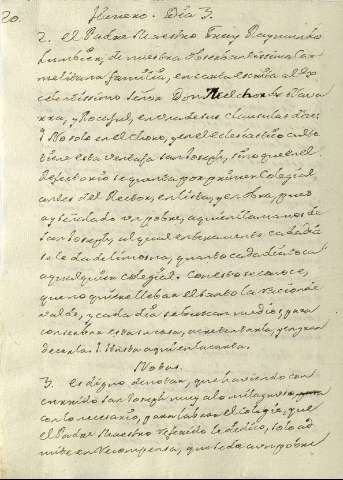 20. Henero. Dia 3.
2. el Padre Maestro Fray Raymundo
Lumbier, de nuestra observantissima Car
melitana familia, en carta escrita al Ex
celentissimo señor Don Melchor de Nava
rra, y Rocaful, en una de sus clausulas dice:
Y no solo en el Choro, y en el eclesiastico
tiene esta ventaja san Joseph, sino que en el
Refectorio se quenta por primer Colegial,
antes del Rector, en lista, y en obra, pues
ay señalado un pobre, a quien llamamos de
san Joseph, al qual enteramente cada dia
se le da de limosna, quanto cada dia toca
a qualquier Colegial. Con esto se conoce,
que no quiere llebar el santo la racion de
valde, y cada dia se buscan medios, para
conservar esta su casa, acrecentarla, y engran
decerla. Hasta aqui en la carta.
Notas.
3. es digno de notar, que haviendo con
currido san Joseph muy a lo milagroso
con lo necesario, para labrar el colegio, que
el Padre Maestro referido le dedicó, solo ad
mite en recompensa, que se de a un pobre